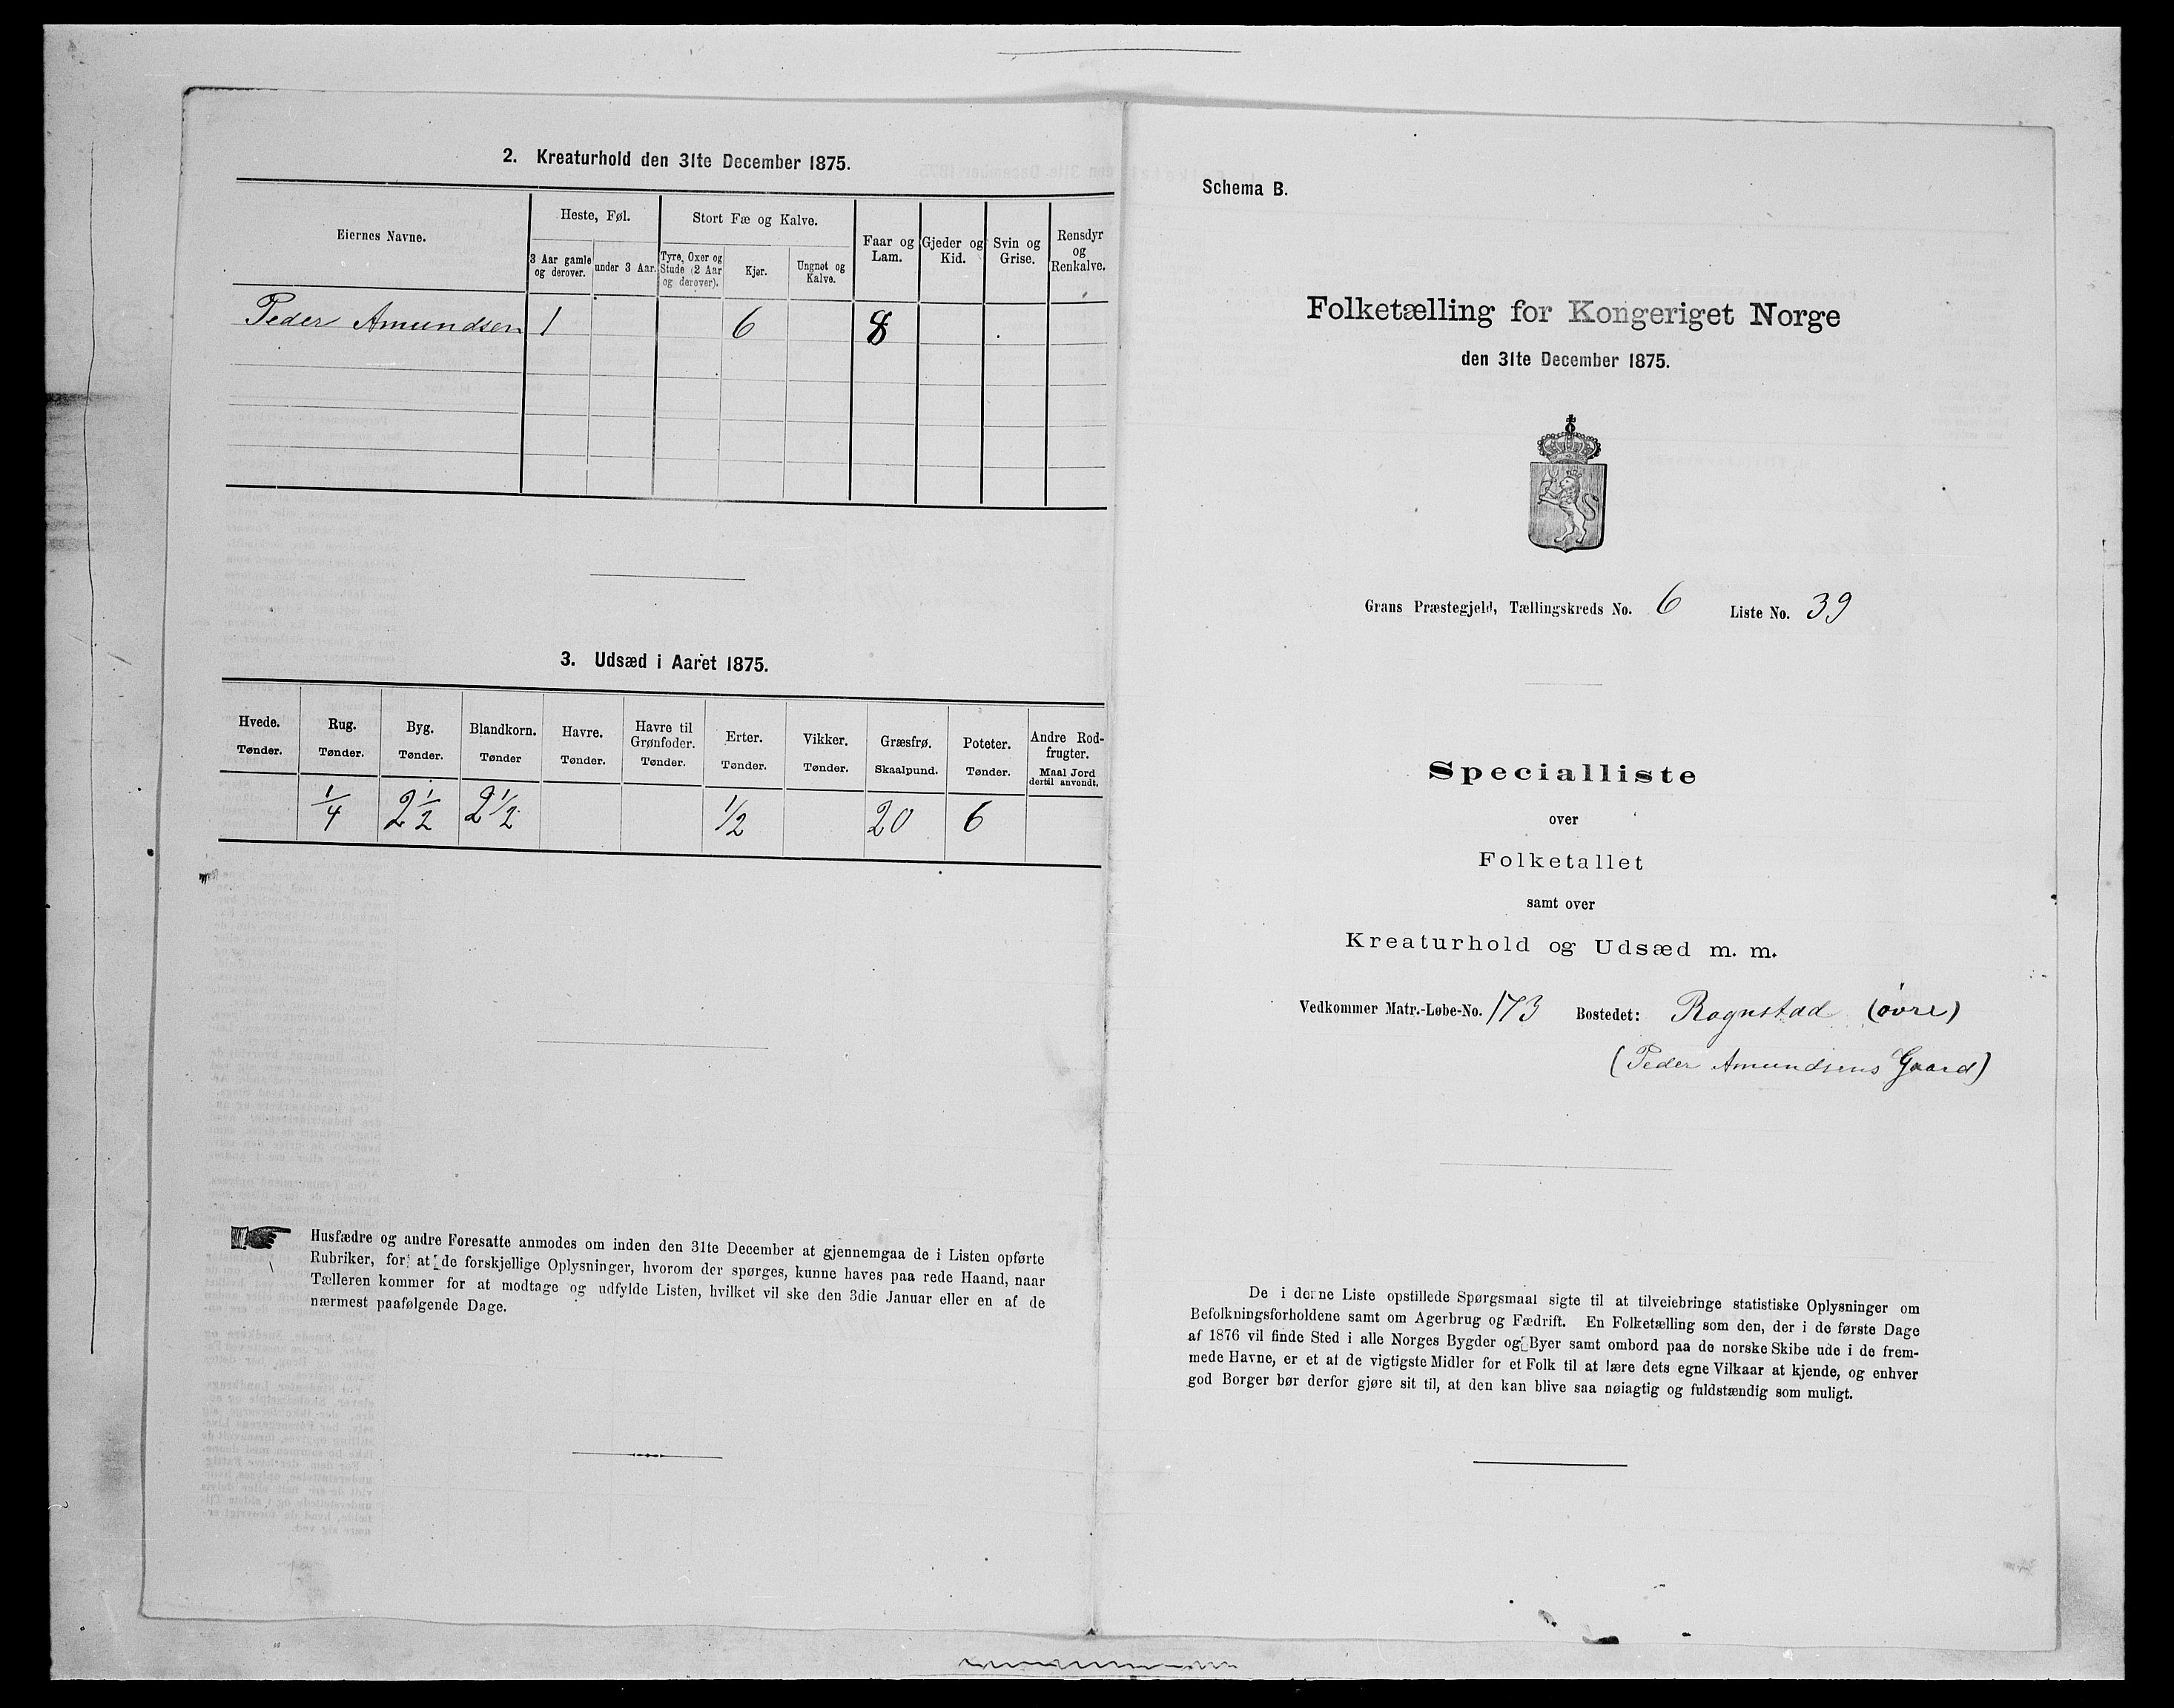 2. Kreaturhold den 31te December 1875.
Eiernes Navne.
Heste, Føl.
Stort Fæ og Kalve.
Faar og Lam.
Gjeder og Kid.
Svin og Grise.
Rensdyr og Renkalve.
3 Aar gamle og derover.
under 3 Aar.
Tyre, Oxer og Stude (2 Aar og derover).
Kjør.
Ungnøt og Kalve.
Peder Amundsen 1 6 8
3. Udsæd i Aaret 1875.
Hvede. Rug. Byg. Blandkorn. Havre. Havre til Grønfoder. Erter. Vikker. Græsfrø. Poteter. Andre Rodfrugter.
Tønder. Tønder. Tønder. Tønder Tønder. Tønder. Tønder. Tønder. Skaalpund. Tønder. Maal Jord dertil anvendt.
1/4 2 1/2 2 1/2 1/2 20 6
Husfædre og andre Foresatte anmodes om inden den 31te December at gjennemgaa de i Listen opførte
Rubriker, for at de forskjellige Oplysninger, hvorom der spørges, kunne haves paa rede Haand, naar
Tælleren kommer for at modtage og udfylde Listen, hvilket vil ske den 3die Januar eller en af de
nærmest paafølgende Dage.
Schema B.
Folketælling for Kongeriget Norge
den 31te December 1875.
Grans Præstegjeld, Tællingskreds No. 6 Liste No. 39
Specialliste
over
Folketallet
samt over
Kreaturhold og Udsæd m. m.
Vedkommer Matr.-Løbe-No. 173 Bostedet: Rognstad (øvre)
(Peder Amundsens Gaard)
De i denne Liste opstillede Spørgsmaal sigte til at tilveiebringe statistiske Oplysninger om
Befolkningsforholdene samt om Agerbrug og Fædrift. En Folketælling som den, der i de første Dage
af 1876 vil finde Sted i alle Norges Bygder og Byer samt ombord paa de norske Skibe ude i de frem-
mede Havne, er et af de vigtigste Midler for et Folk til at lære dets egne Vilkaar at kjende, og enhver
god Borger bør derfor gjøre sit til, at den kan blive saa nøiagtig og fuldstændig som muligt.